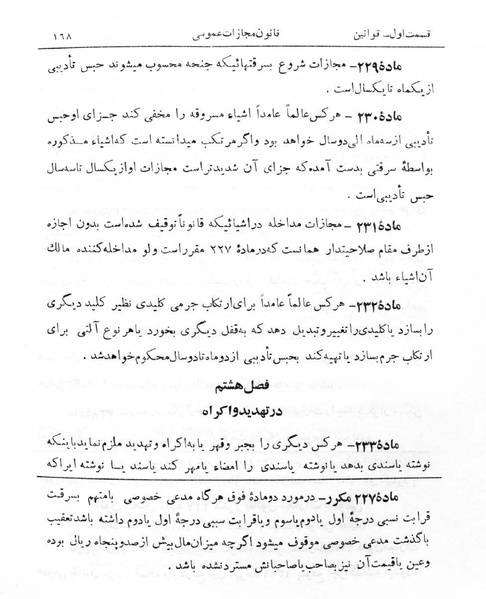 قسمت اول- قوانین قانون مجازات عمومی ۱۶۸
مادهٔ ۲۲۹- مجازات شروع بسرقتهائیکه جنحه محسوب میشوند حبس تأدیبی
از یکماه تا یکسال است.
مادهٔ ۲۳۰- هرکس عالماً عامداً اشیاء مسروقه را مخفی کند جزای او حبس
تأدیبی از سه ماه الی دو سال خواهد بود و اگر مرتکب میدانسته است که اشیاء مذکوره
بواسطهٔ سرقتی بدست آمده که جزای آن شدیدتر است مجازات او از یکسال تا سه سال
حبس تأدیبی است.
مادهٔ ۲۳۱- مجازات مداخله در اشیائیکه قانوناً توقیف شده است بدون اجازه
از طرف مقام صلاحیتدار همانست که در مادهٔ ۲۲۷ مقرر است ولو مداخله کننده مالك
آن اشیاء باشد.
مادهٔ ۲۳۲- هرکس عالماً عامداً برای ارتکاب جرمی کلیدی نظیر کلید دیگری
را بسازد یا کلیدی را تغییر و تبدیل دهد که به قفل دیگری بخورد یا هر نوع آلتی برای
ارتکاب جرم بسازد یا تهیه کند بحبس تأدیبی از دو ماه تا دو سال محکوم خواهد شد.
فصل هشتم
در تهدید و اکراه
مادهٔ ۲۳۳- هرکس دیگری را بجبر و قهر یا به اکراه و تهدید ملزم نماید باینکه
نوشته یا سندی بدهد یا نوشته یا سندی را امضاء یا مهر کند یا سند یا نوشته ایرا که
مادهٔ ۲۲۷ مکرر- در مورد دو مادهٔ فوق هرگاه مدعی خصوصی با متهم بسرقت
قرابت نسبی درجهٔ اول یا دوم یا سوم و یا قرابت سببی درجهٔ اول یا دوم داشته باشد تعقیب
با گذشت مدعی خصوصی موقوف میشود اگرچه میزان مال بیش از صد و پنجاه ریال بوده
وعین یا قیمت آن نیز بصاحب یا صاحبانش مسترد نشده باشد.